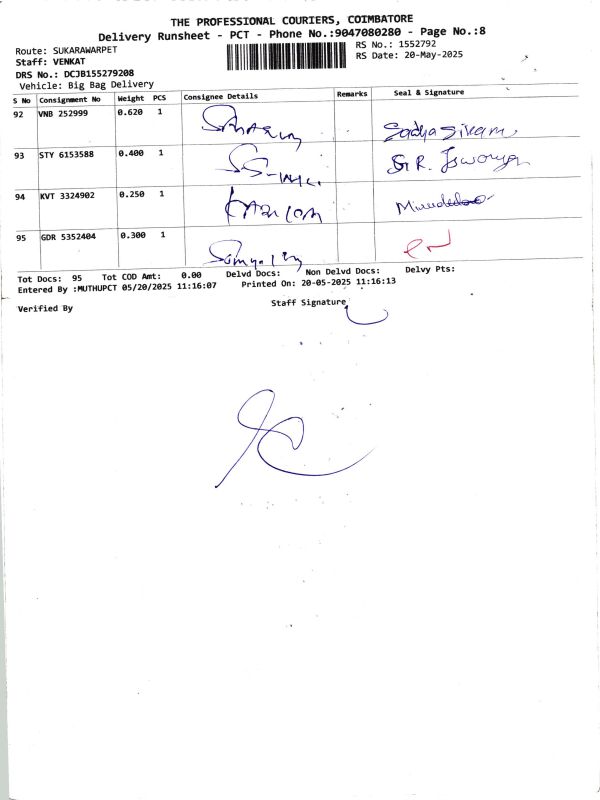 THE PROFESSIONAL COURIERS, COIMBATORE
Delivery Runsheet - PCT - Phone No.:9047080280 - Page No.:8
Route: SUKARAWARPET
RS No.: 1552792
Staff: VENKAT
RS Date: 20-May-2025
DRS No.: DCJB155279208
Vehicle: Big Bag Delivery
S No Consignment No Weight PCS Consignee Details Remarks Seal & Signature
92 VNB 252999 0.620 1 Sadhasivam
93 STY 6153588 0.400 1 G.R. Iswarya
94 KVT 3324902 0.250 1
95 GDR 5352404 0.300 1
Tot Docs: 95 Tot COD Amt: 0.00 Delvd Docs: Non Delvd Docs: Delvy Pts:
Entered By :MUTHUPCT 05/20/2025 11:16:07 Printed On: 20-05-2025 11:16:13
Verified By Staff Signature